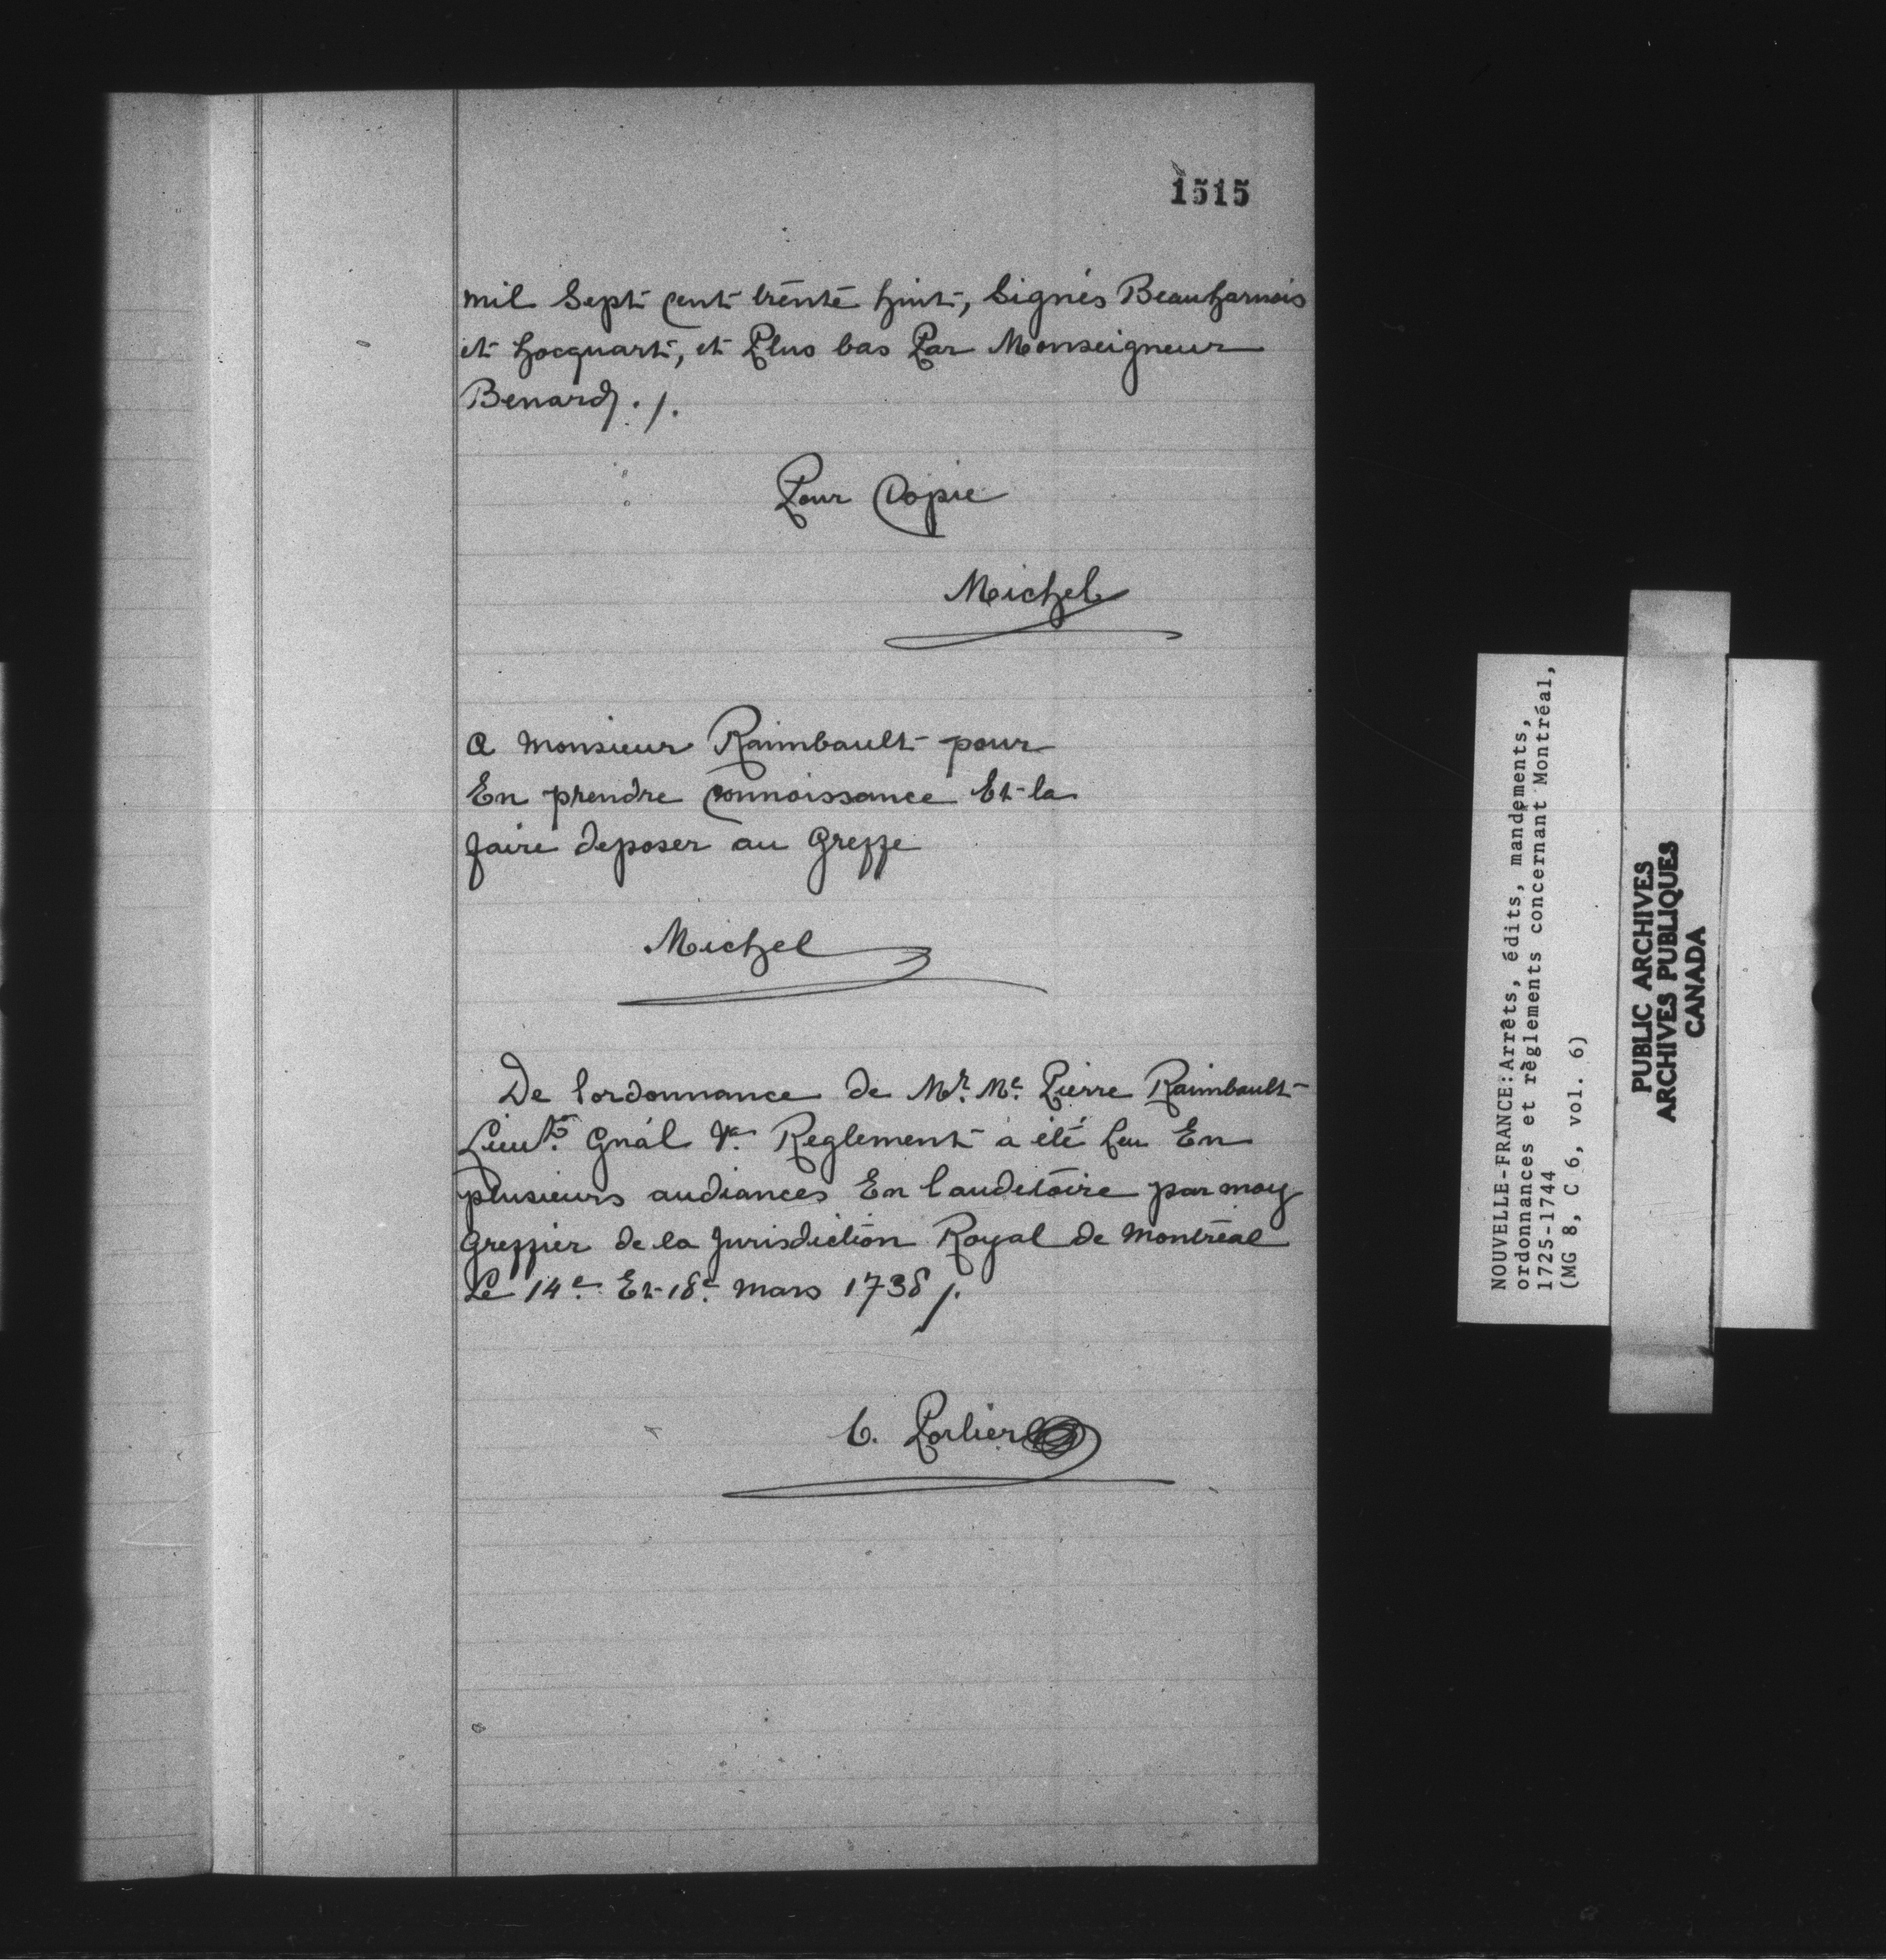 1515
mil Sept cent trente huit, Signés Beauharnois
et hocquart, et Plus bas Par Monseigneur
Benard ./.
Pour Copie
Michel
A Monsieur Raimbault pour
En prendre Connoissance Et la
faire deposer au Greffe
Michel
De lordonnance de Mr. Me. Pierre Raimbault
Lieut. Gnál Reglement a été Leu En
plusieurs audiances En lauditoire par moy
Greffier de la Jurisdiction Royal de Montreal
Le 14e. Et 18e. mars 1738 /.
C. Porlier
NOUVELLE-FRANCE:Arrêts, édits, mandements,
ordonnances et règlements concernant Montréal,
1725-1744
(MG 8, C 6, vol. 6)
PUBLIC ARCHIVES
ARCHIVES PUBLIQUES
CANADA